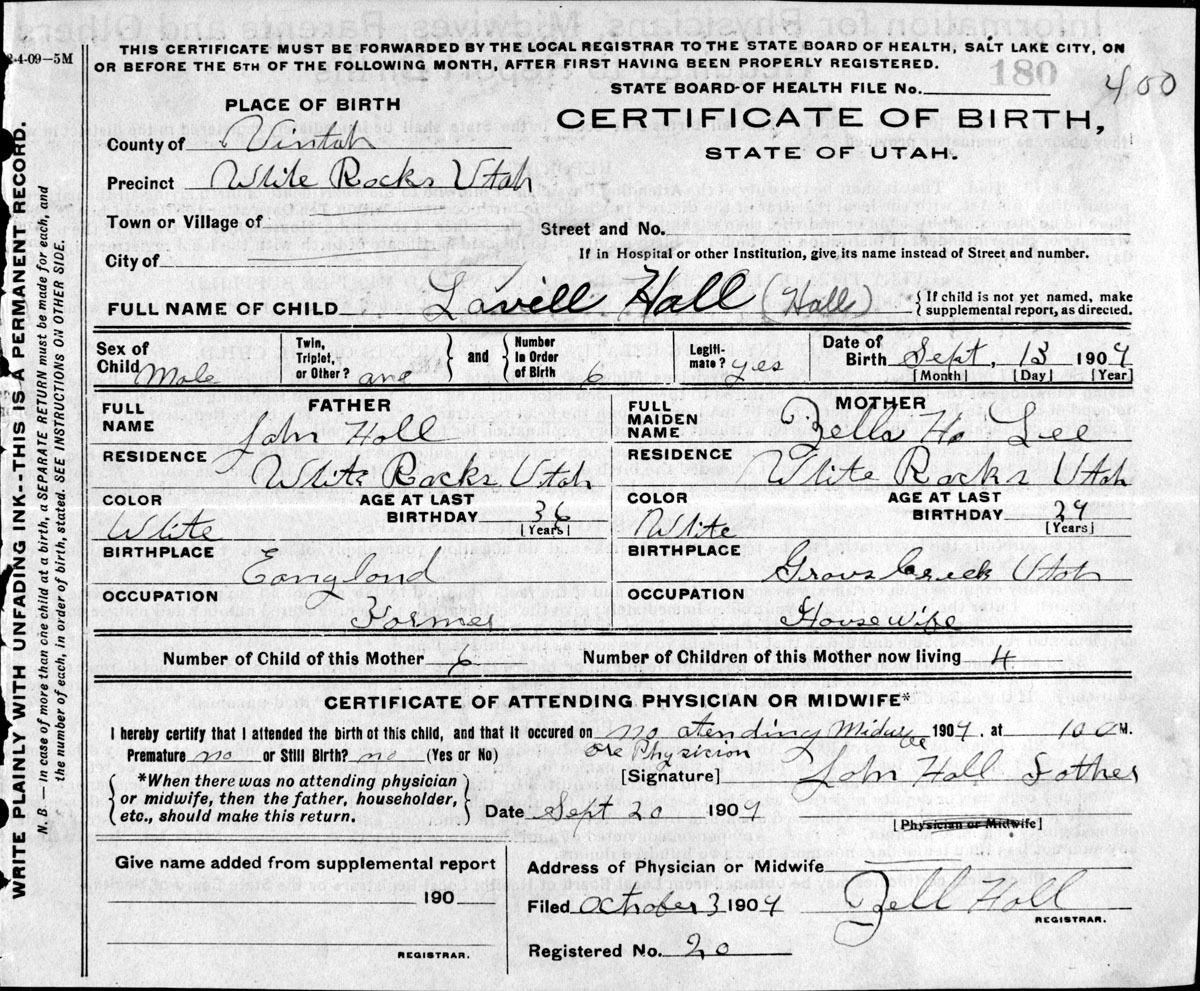 2-4-09–5M
THIS CERTIFICATE MUST BE FORWARDED BY THE LOCAL REGISTRAR TO THE STATE BOARD OF HEALTH, SALT LAKE CITY, ON
OR BEFORE THE 5TH OF THE FOLLOWING MONTH, AFTER FIRST HAVING BEEN PROPERLY REGISTERED.
180
400
STATE BOARD OF HEALTH FILE No.
PLACE OF BIRTH
CERTIFICATE OF BIRTH,
STATE OF UTAH.
County of Uintah
Precinct White Rocks Utah
Town or Village of
Street and No.
City of
If in Hospital or other Institution, give its name instead of Street and number.
FULL NAME OF CHILD Lavell Hall (Hall) { If child is not yet named, make
supplemental report, as directed.
Sex of Child Male
Twin, Triplet, or Other? one } and { Number in Order of Birth 6
Legiti-mate? yes
Date of Birth Sept, 13 1909
[Month] [Day] [Year]
FATHER
FULL NAME John Hall
RESIDENCE White Rocks Utah
COLOR White
AGE AT LAST BIRTHDAY 36 [Years]
BIRTHPLACE Eangland
OCCUPATION Farmer
MOTHER
FULL MAIDEN NAME Zella Ha Lee
RESIDENCE White Rocks Utah
COLOR White
AGE AT LAST BIRTHDAY 29 [Years]
BIRTHPLACE Creek Utah
OCCUPATION House Wife
Number of Child of this Mother 6 Number of Children of this Mother now living 4
CERTIFICATE OF ATTENDING PHYSICIAN OR MIDWIFE*
I hereby certify that I attended the birth of this child, and that it occured on no atending Midwife 1909, at 10 a M.
ore Physicion
Premature? no or Still Birth? no (Yes or No)
[Signature] John Hall Father
*When there was no attending physician
or midwife, then the father, householder,
etc., should make this return.
Date Sept 20 1909
[Physician or Midwife]
Give name added from supplemental report
190
REGISTRAR.
Address of Physician or Midwife
Filed October 3 1909 Zell Hall
REGISTRAR.
Registered No. 20
WRITE PLAINLY WITH UNFADING INK--THIS IS A PERMANENT RECORD.
N. B. — In case of more than one child at a birth, a SEPARATE RETURN must be made for each, and
the number of each, in order of birth, stated. SEE INSTRUCTIONS ON OTHER SIDE.